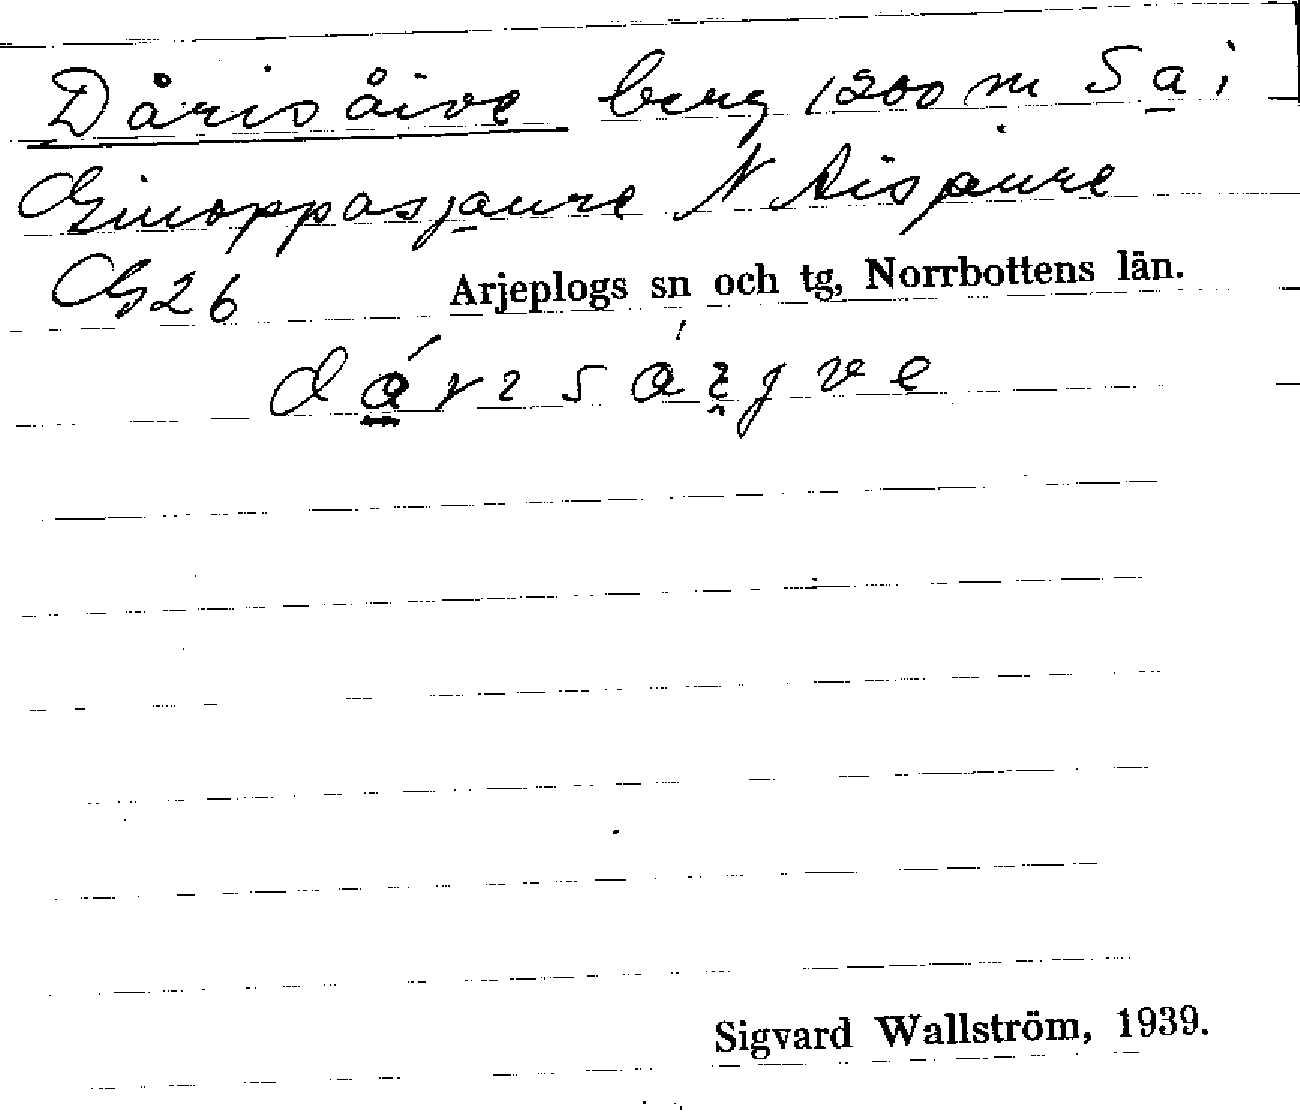 Dårisåive berg 1200 m S a i
Giuoppasjaure N Aisjaure
G26 Arjeplogs sn och tg, Norrbottens län.
Sigvard Wallström, 1939.